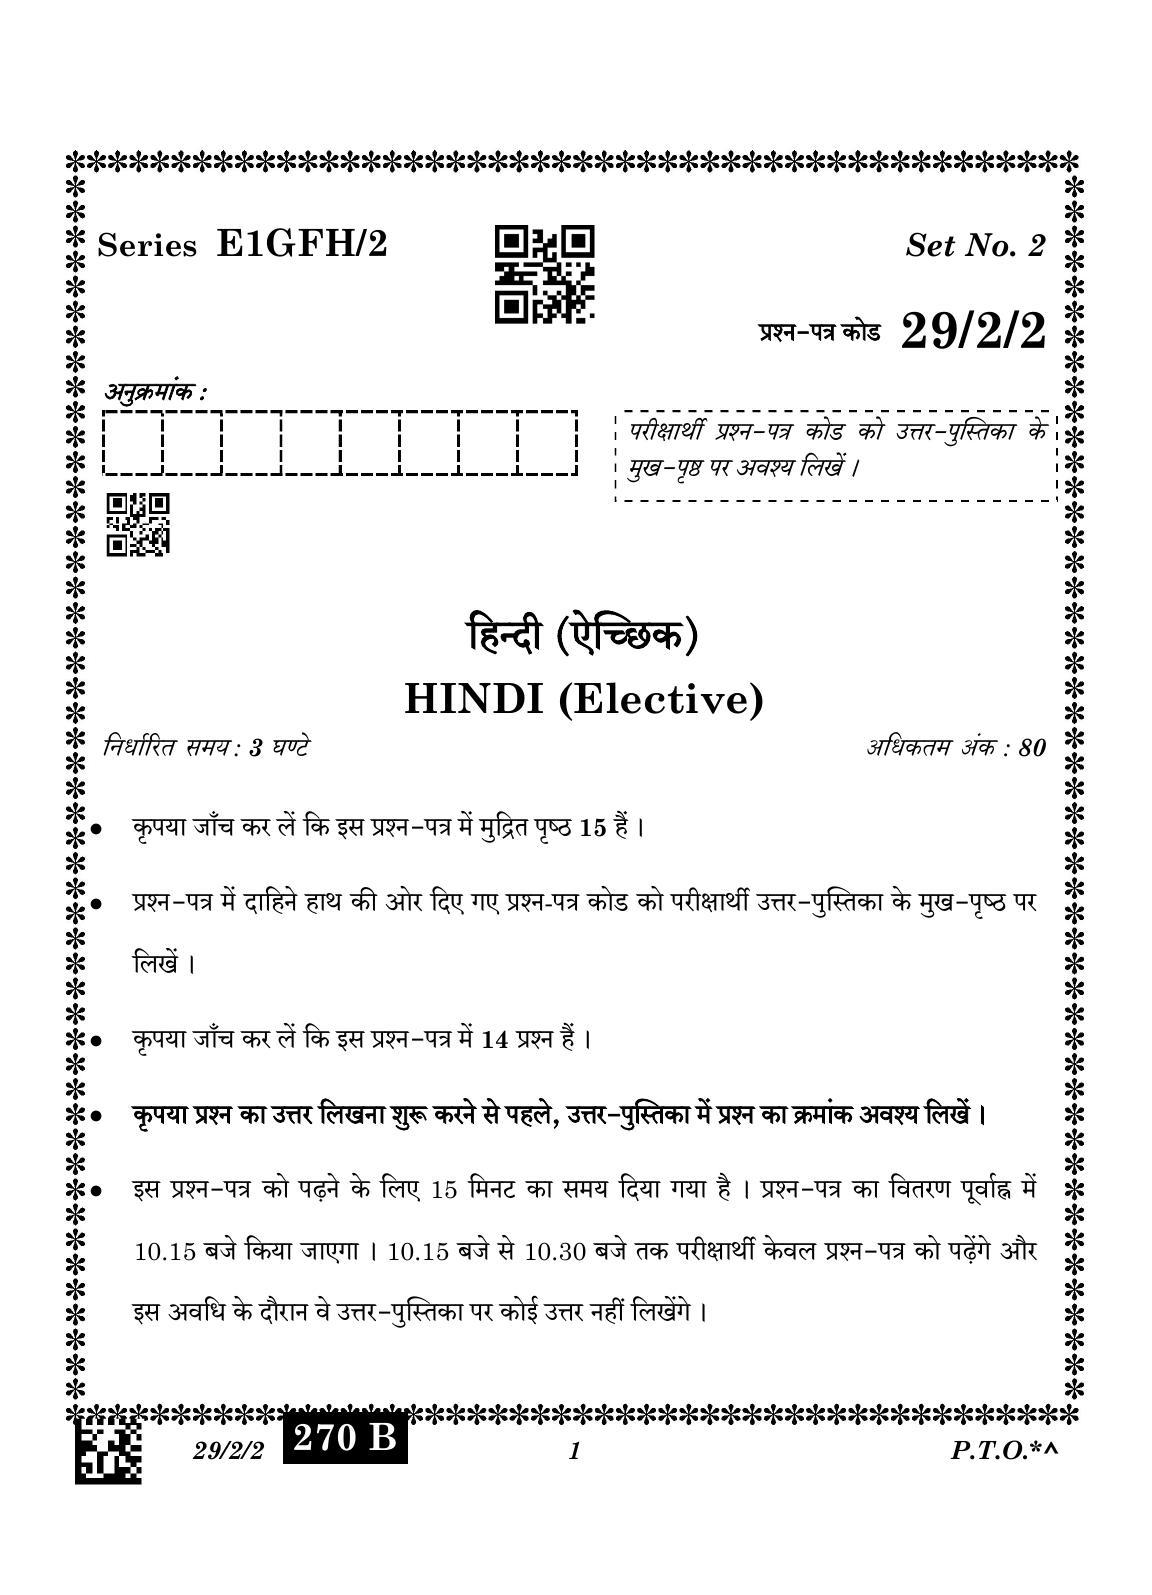 Series E1GFH/2
Set No. 2
प्रश्न-पत्र कोड 29/2/2
अनुक्रमांक :
परीक्षार्थी प्रश्न-पत्र कोड को उत्तर-पुस्तिका के
मुख-पृष्ठ पर अवश्य लिखें ।
हिन्दी (ऐच्छिक)
HINDI (Elective)
निर्धारित समय : 3 घण्टे
अधिकतम अंक : 80
• कृपया जाँच कर लें कि इस प्रश्न-पत्र में मुद्रित पृष्ठ 15 हैं ।
• प्रश्न-पत्र में दाहिने हाथ की ओर दिए गए प्रश्न-पत्र कोड को परीक्षार्थी उत्तर-पुस्तिका के मुख-पृष्ठ पर
लिखें ।
• कृपया जाँच कर लें कि इस प्रश्न-पत्र में 14 प्रश्न हैं ।
• कृपया प्रश्न का उत्तर लिखना शुरू करने से पहले, उत्तर-पुस्तिका में प्रश्न का क्रमांक अवश्य लिखें ।
• इस प्रश्न-पत्र को पढ़ने के लिए 15 मिनट का समय दिया गया है । प्रश्न-पत्र का वितरण पूर्वाह्न में
10.15 बजे किया जाएगा । 10.15 बजे से 10.30 बजे तक परीक्षार्थी केवल प्रश्न-पत्र को पढ़ेंगे और
इस अवधि के दौरान वे उत्तर-पुस्तिका पर कोई उत्तर नहीं लिखेंगे ।
29/2/2 270 B 1 P.T.O.*^